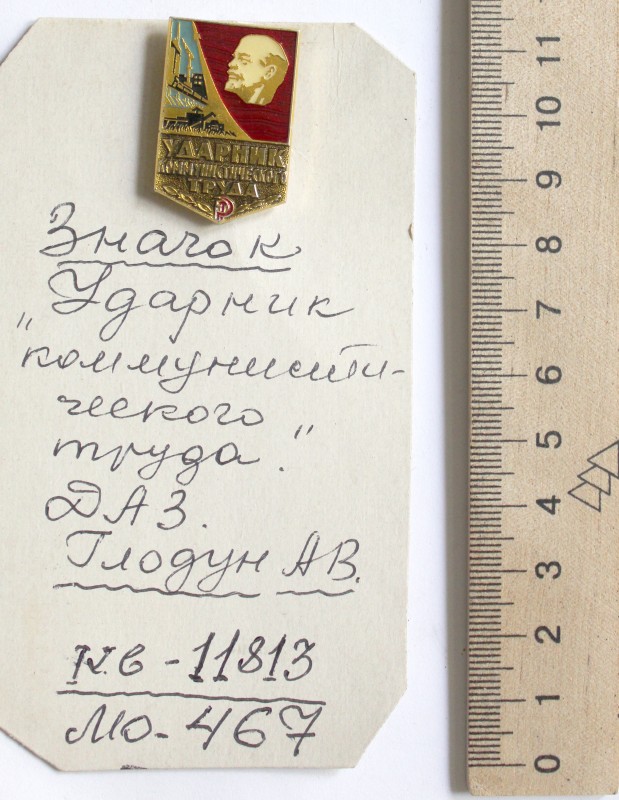 УДАРНИК
КОММУНИСТИЧЕСКОГО
ТРУДА
Значок
Ударник
„коммунисти-
ческого
труда."
ДАЗ.
Глодун АВ.
КВ-11813
МО-467
11
10
9
8
7
6
5
4
3
2
1
0